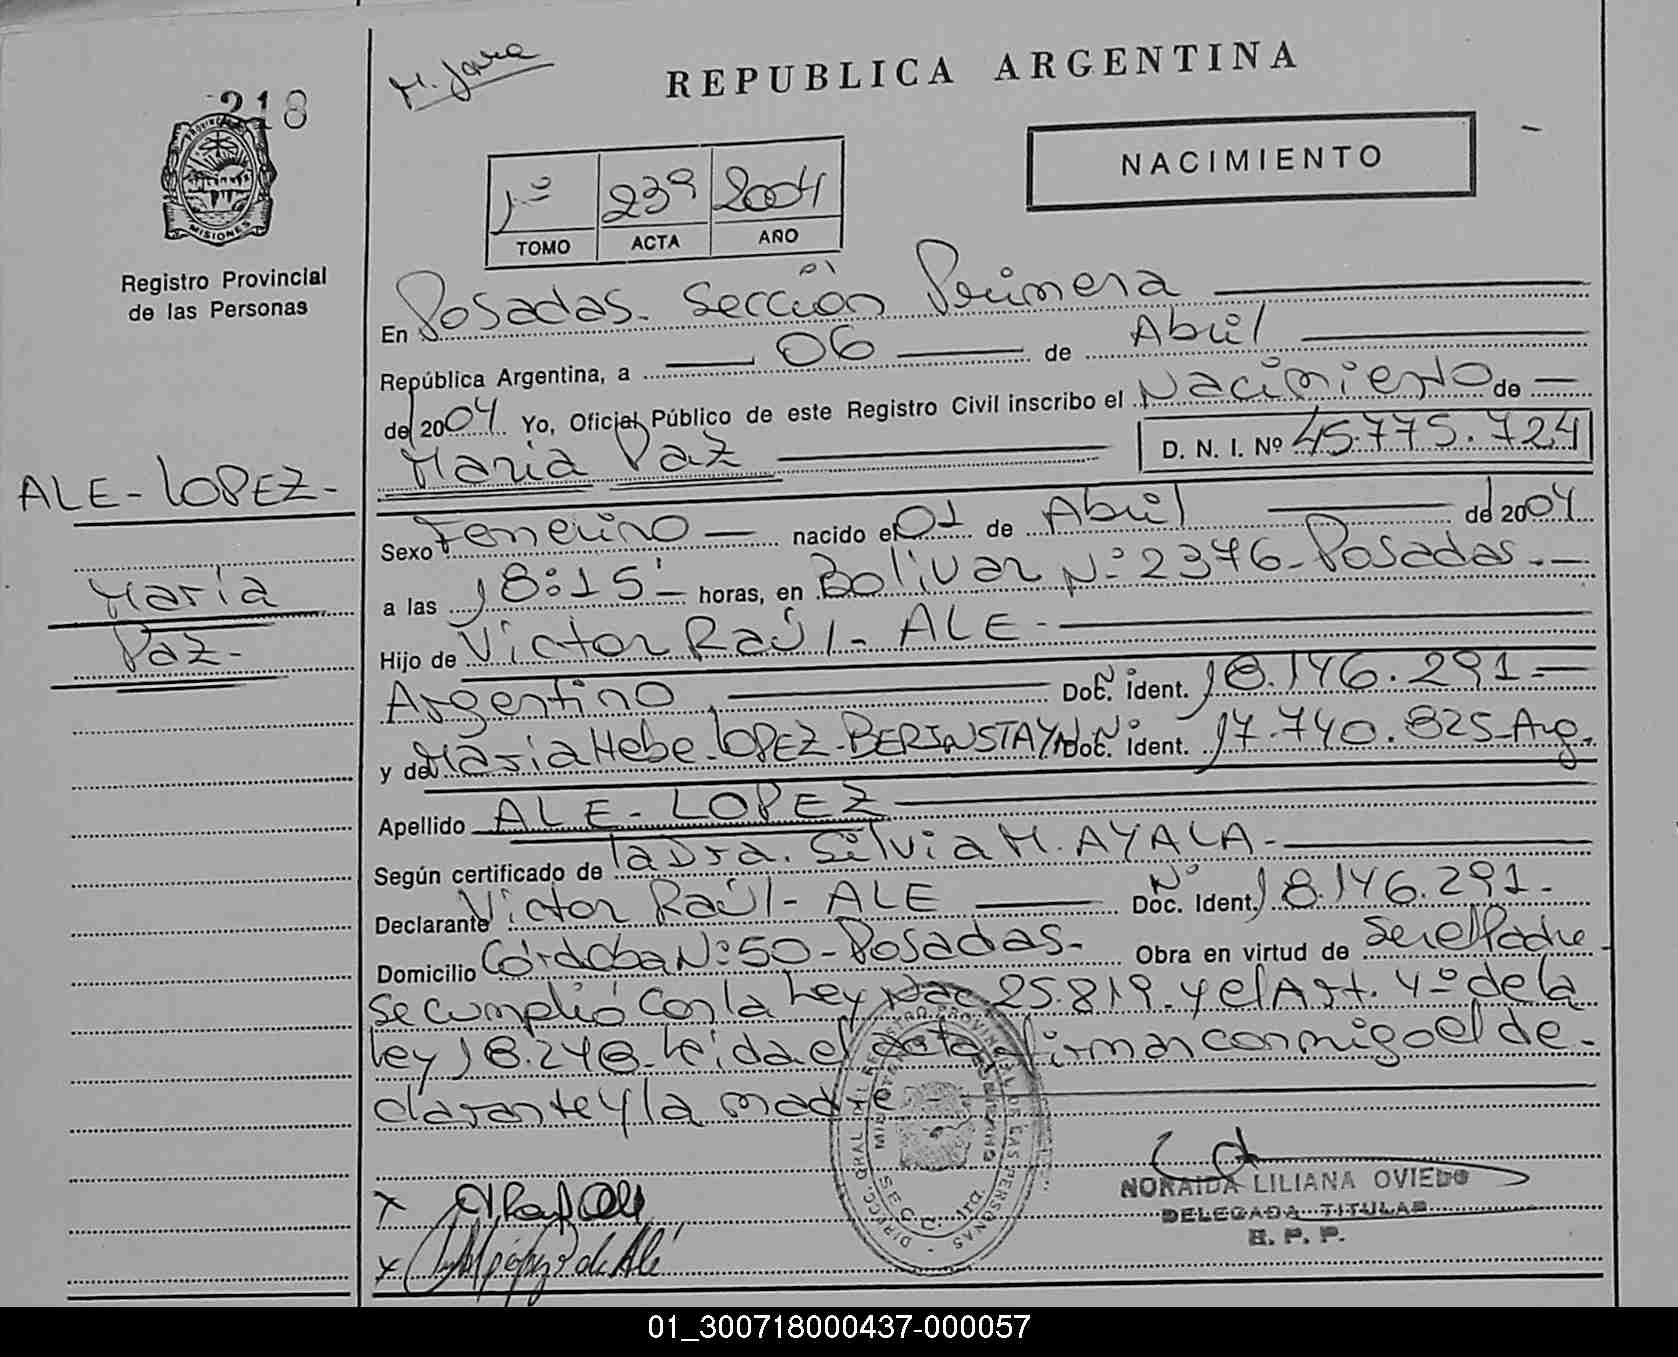 218
M. Jara
REPUBLICA ARGENTINA
NACIMIENTO
1º 239 2004
TOMO ACTA AÑO
MISIONES
Registro Provincial
de las Personas
En Posadas - Sección Primera
República Argentina, a 06 de Abril
del 2004 Yo, Oficial Público de este Registro Civil inscribo el Nacimiento de
María Paz D. N. I. Nº 45.775.724
ALE - LOPEZ -
María
Paz -
Sexo Femenino nacido el 01 de Abril del 2004
a las 18:15 horas, en Bolivar Nº 2376 - Posadas -
Hijo de Victor Raúl - ALE -
Argentino, Nº Doc. Ident. 18.146.291 -
y de María Hebe - LOPEZ - BERINSTAYN Nº Doc. Ident. 17.740.825 - Arg.
Apellido ALE - LOPEZ
Según certificado de la Dra. Silvia M. AYALA -
Declarante Victor Raúl - ALE Nº Doc. Ident. 18.146.291 -
Domicilio Córdoba Nº 50 - Posadas - Obra en virtud de ser el Padre
se cumplió con la Ley Nac 25.819 - y el Art. 4º de la
Ley 18.248 - Leída el acta firman conmigo el de-
clarante y la madre
NORAIDA LILIANA OVIEDO
DELEGADA TITULAR
R. P. P.
01_300718000437-000057